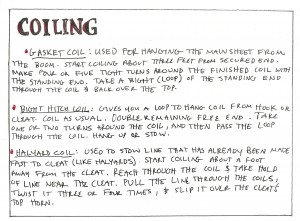 COILING
• GASKET COIL: USED FOR HANGING THE MAINSHEET FROM
THE BOOM. START COILING ABOUT THREE FEET FROM SECURED END.
MAKE FOUR OR FIVE TIGHT TURNS AROUND THE FINISHED COIL WITH
THE STANDING END. TAKE A BIGHT (LOOP) OF THE STANDING END
THROUGH THE COIL & BACK OVER THE TOP.
• BIGHT HITCH COIL: GIVES YOU A LOOP TO HANG COIL FROM HOOK OR
CLEAT. COIL AS USUAL. DOUBLE REMAINING FREE END. TAKE
ONE OR TWO TURNS AROUND THE COIL, AND THEN PASS THE LOOP
THROUGH THE COIL. HANG UP OR STOW.
• HALYARD COIL: USED TO STOW LINE THAT HAS ALREADY BEEN MADE
FAST TO CLEAT (LIKE HALYARDS). START COILING ABOUT A FOOT
AWAY FROM THE CLEAT, REACH THROUGH THE COIL & TAKE HOLD
OF LINE NEAR THE CLEAT. PULL THE LINE THROUGH THE COILS,
TWIST IT THREE OR FOUR TIMES, & SLIP IT OVER THE CLEAT'S
TOP HORN.